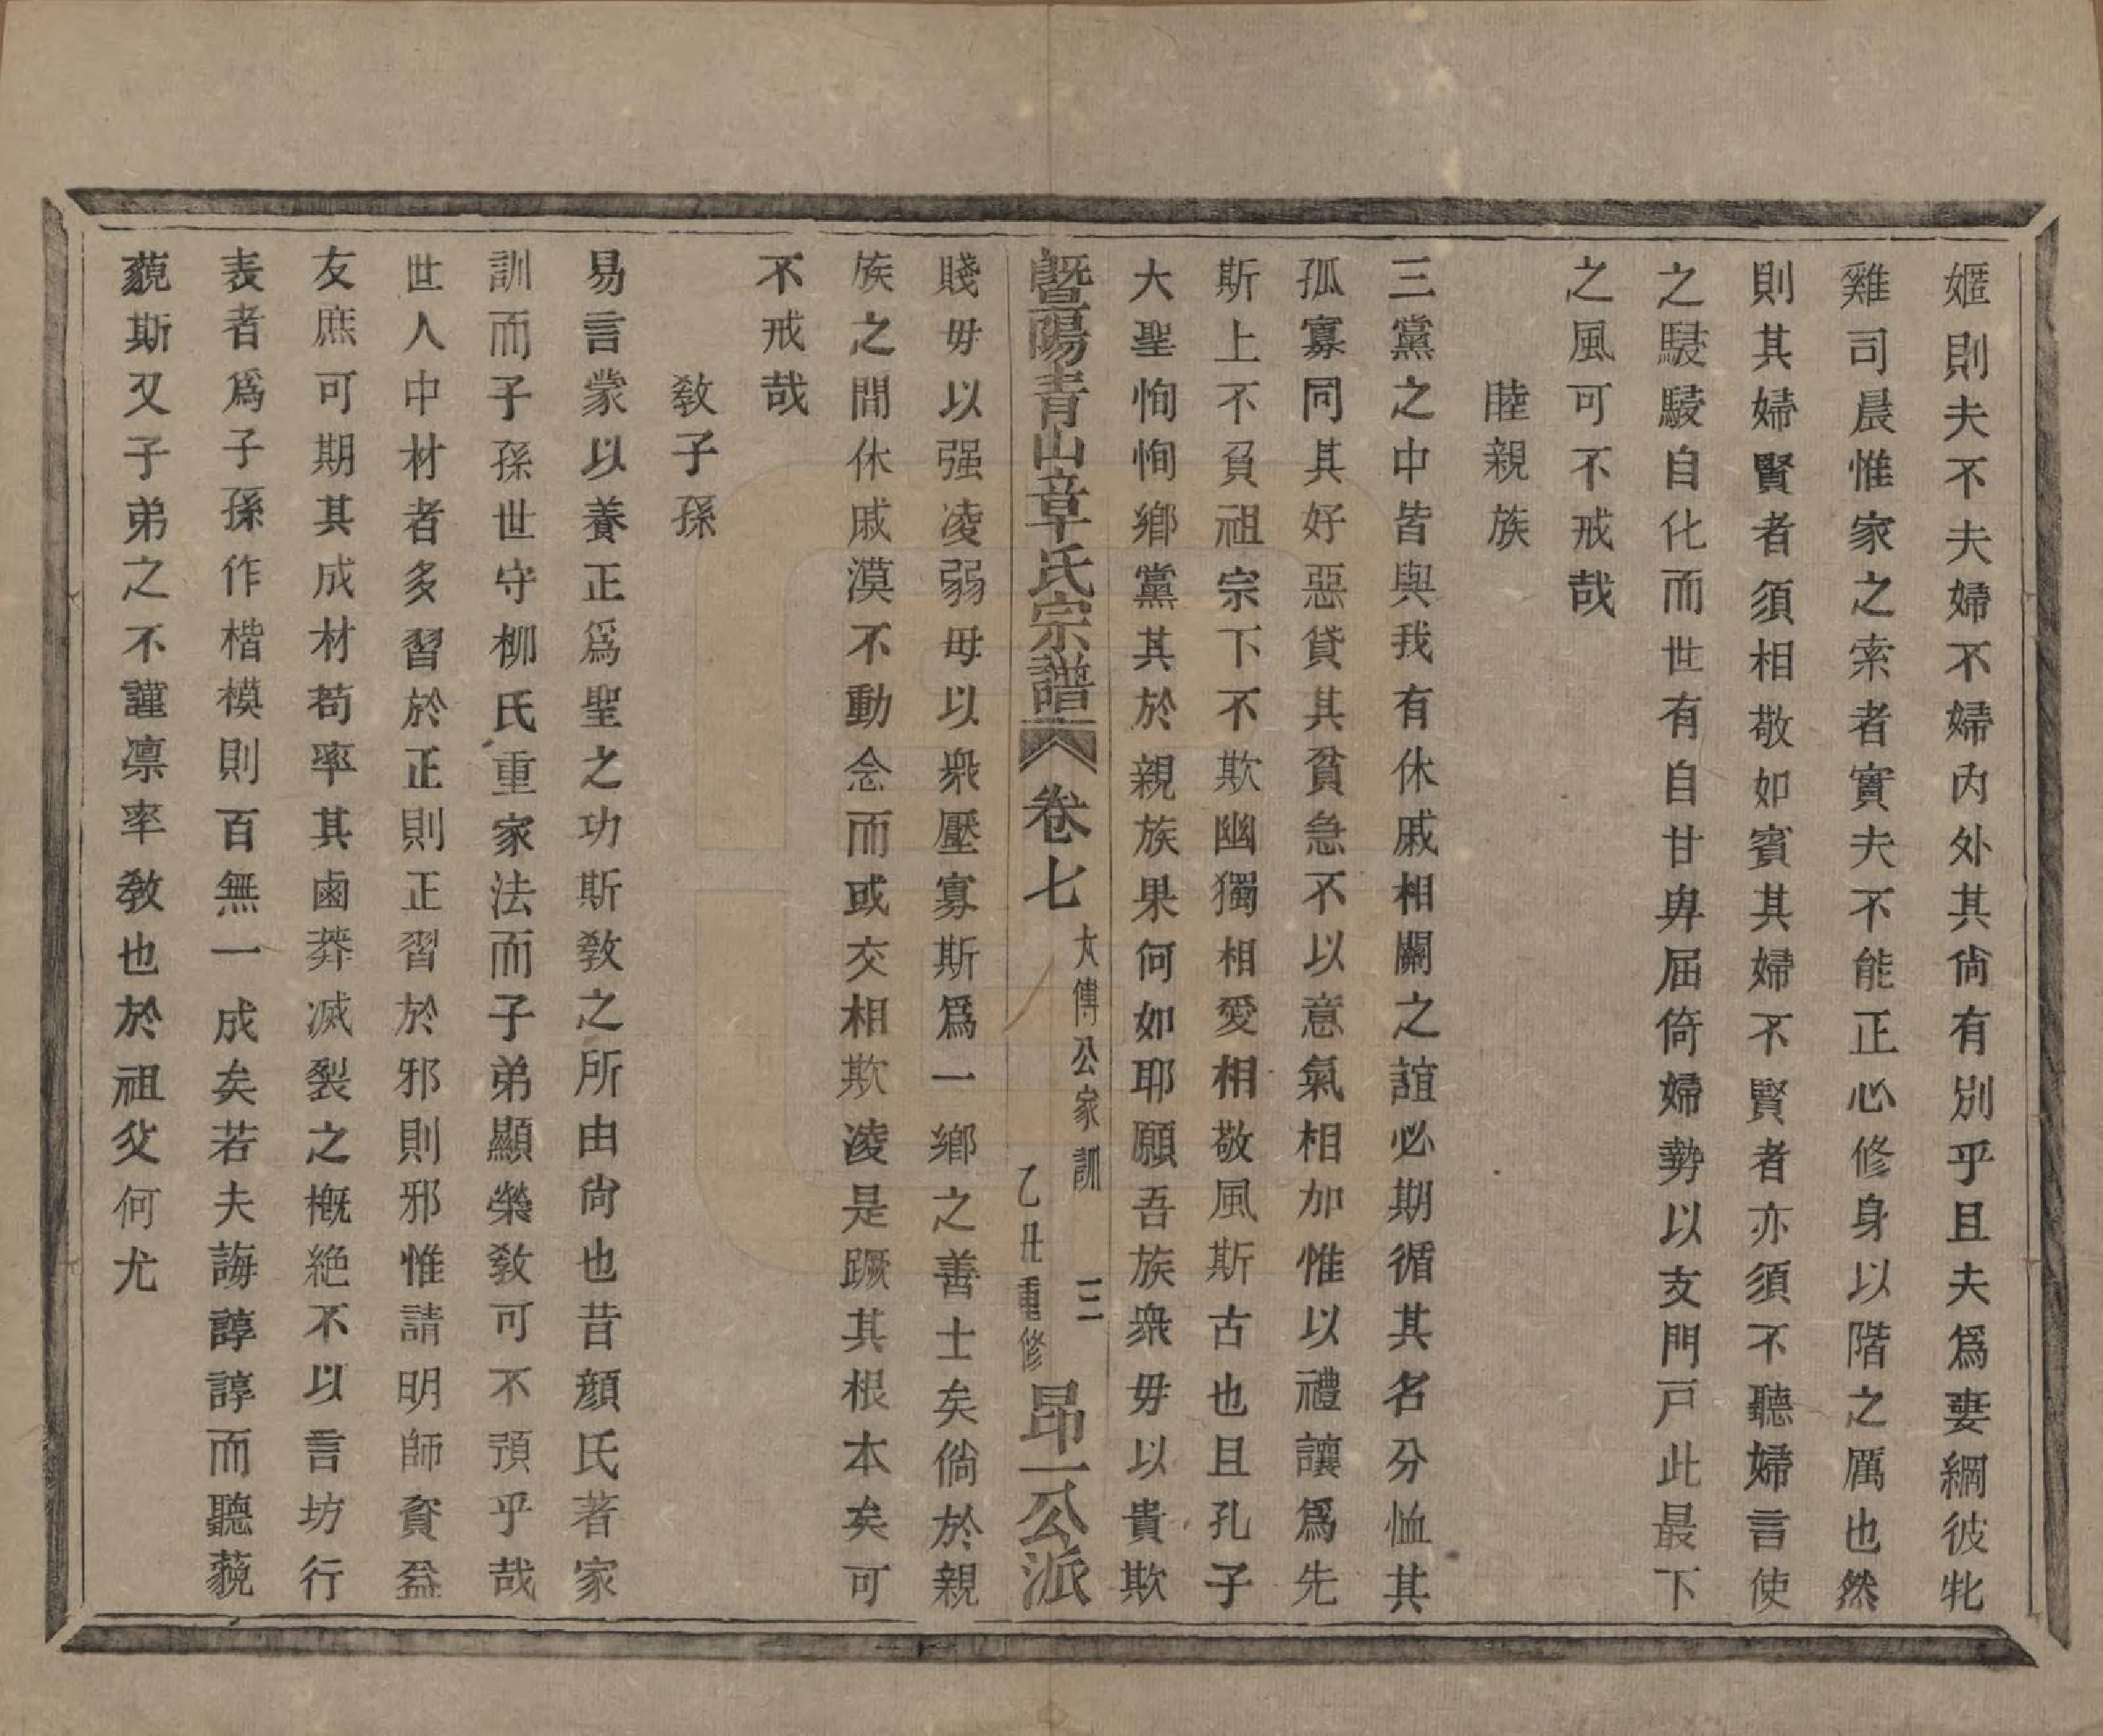 嫟則夫不夫婦不婦內外其尙有別乎且夫爲妻綱彼牝
雞司晨惟家之索者實夫不能正心修身以階之厲也然
則其婦賢者須相敬如賓其婦不賢者亦須不聽婦言使
之駸駸自化而世有自甘卑屈倚婦勢以支門戸此最下
之風可不戒哉
睦親族
三黨之中皆與我有休戚相關之誼必期循其名分恤其
孤寡同其好惡貸其貧急不以意氣相加惟以禮讓爲先
斯上不負祖宗下不欺幽獨相愛相敬風斯古也且孔子
大聖恂恂鄉黨其於親族果何如耶願吾族衆毋以貴欺
暨陽青山章氏宗譜 卷七 大傅公家訓 三 乙丑重修 昂一公派
賤毋以强凌弱毋以衆壓寡斯爲一鄉之善士矣倘於親
族之間休戚漠不動念而或交相欺凌是蹶其根本矣可
不戒哉
敎子孫
易言蒙以養正爲聖之功斯敎之所由尙也昔顏氏著家
訓而子孫世守柳氏重家法而子弟顯榮敎可不預乎哉
世人中材者多習於正則正習於邪則邪惟請明師資益
友庶可期其成材苟率其鹵莽滅裂之概絕不以言坊行
表者爲子孫作楷模則百無一成矣若夫誨諄諄而聽藐
藐斯又子弟之不謹凛率敎也於祖父何尤